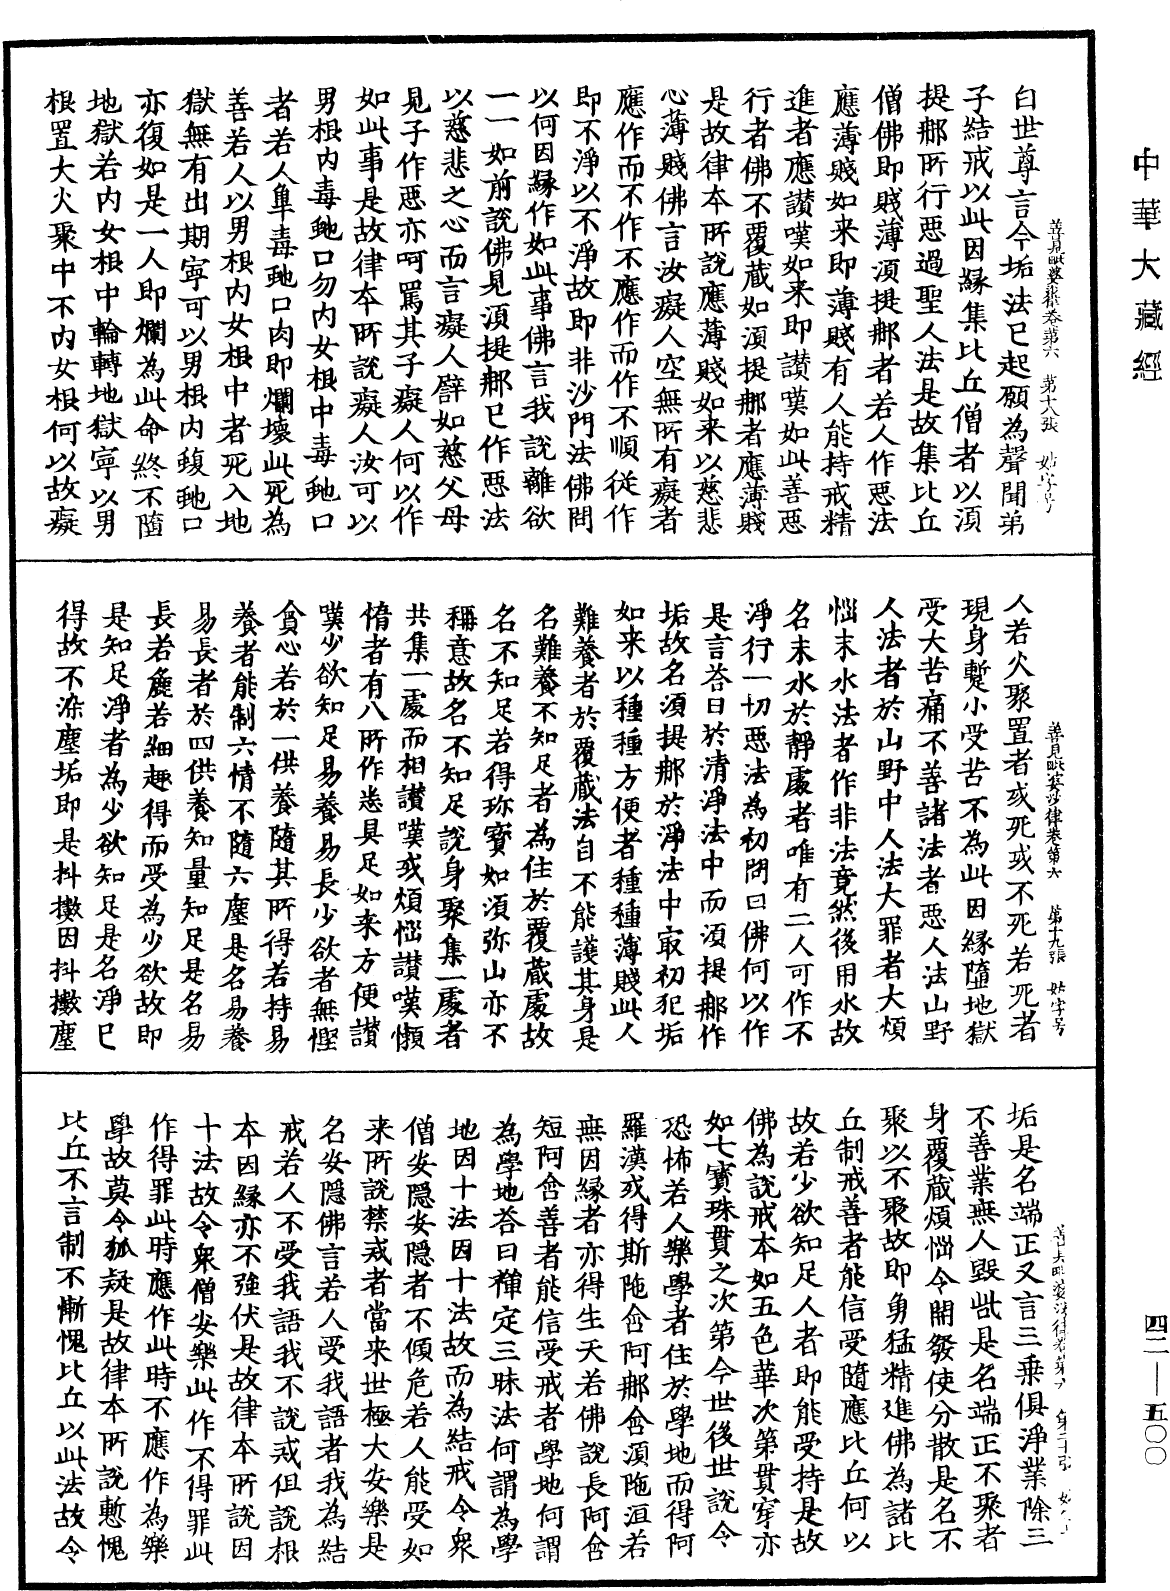 中華大藏經
善見毗婆沙律卷第六 第十八張 姑字号
白世尊言今垢法已起願為聲聞弟
子結戒以此因緣集比丘僧者以須
提𨙻所行惡過聖人法是故集比丘
僧佛即賤薄須提𨙻者若人作惡法
應薄賤如来即薄賤有人能持戒精
進者應讃嘆如来即讃嘆如此善惡
行者佛不覆蔵如須提𨙻者應薄賤
是故律本所說應薄賤如来以慈悲
心薄賤佛言汝癡人空無所有癡者
應作而不作不應作而作不順従作
即不淨以不淨故即非沙門法佛問
以何因緣作如此事佛言我說離欲
一一如前說佛見須提𨙻已作惡法
以慈悲之心而言癡人譬如慈父母
見子作惡亦呵罵其子癡人何以作
如此事是故律本所說癡人汝可以
男根内毒虵口勿内女根中毒虵口
者若人𦤀毒虵口肉即爛壞此死為
善若人以男根内女根中者死入地
獄無有出期寧可以男根内蝮虵口
亦復如是一人即爛為此命終不墮
地獄若内女根中輪轉地獄寧以男
根置大火聚中不内女根何以故癡
善見毗婆沙律卷第六 第十九張 姑字号
人若火聚置者或死或不死若死者
現身蹔小受苦不為此因緣墮地獄
受大苦痛不善諸法者惡人法山野
人法者於山野中人法大罪者大煩
惱末水法者作非法竟然後用水故
名末水於靜處者唯有二人可作不
淨行一切惡法為初問曰佛何以作
是言荅曰於清淨法中而須提𨙻作
垢故名須提𨙻於淨法中冣初犯垢
如来以種種方便者種種薄賤此人
難養者於覆蔵法自不能護其身是
名難養不知足者為住於覆蔵處故
名不知足若得珎寶如須弥山亦不
稱意故名不知足說身聚集一處者
共集一處而相讃嘆或煩惱讃嘆懶
惰者有八所作恚具足如来方便讃
嘆少欲知足易養易長少欲者無慳
貪心若於一供養隨其所得若持易
養者能制六情不隨六塵是名易養
易長者於四供養知量知足是名易
長若麁若細趣得而受為少欲故即
是知足淨者為少欲知足是名淨已
得故不染塵垢即是抖擻因抖擻塵
垢是名端正又言三乗俱淨業除三
不善業無人毀呰是名端正不聚者
身覆蔵煩惱令開發使分散是名不
聚以不聚故即勇猛精進佛為諸比
丘制戒善者能信受隨應比丘何以
故若少欲知足人者即能受持是故
佛為說戒本如五色華次第貫穿亦
如七寶珠貫之次第今世後世說令
恐怖若人樂學者住於學地而得阿
羅漢或得斯陁含阿𨙻含須陁洹若
無因緣者亦得生天若佛說長阿含
短阿含善者能信受戒者學地何謂
為學地荅曰禪定三昧法何謂為學
地因十法因十法故而為結戒令衆
僧安隱安隱者不傾危若人能受如
来所說禁戒者當来世極大安樂是
名安隱佛言若人受我語者我為結
戒若人不受我語我不說戒但說根
本因緣亦不強伏是故律本所說因
十法故令衆僧安樂此作不得罪此
作得罪此時應作此時不應作為樂
學故莫令狐疑是故律本所說慙愧
比丘不言制不慚愧比丘以此法故令
四二—五〇〇